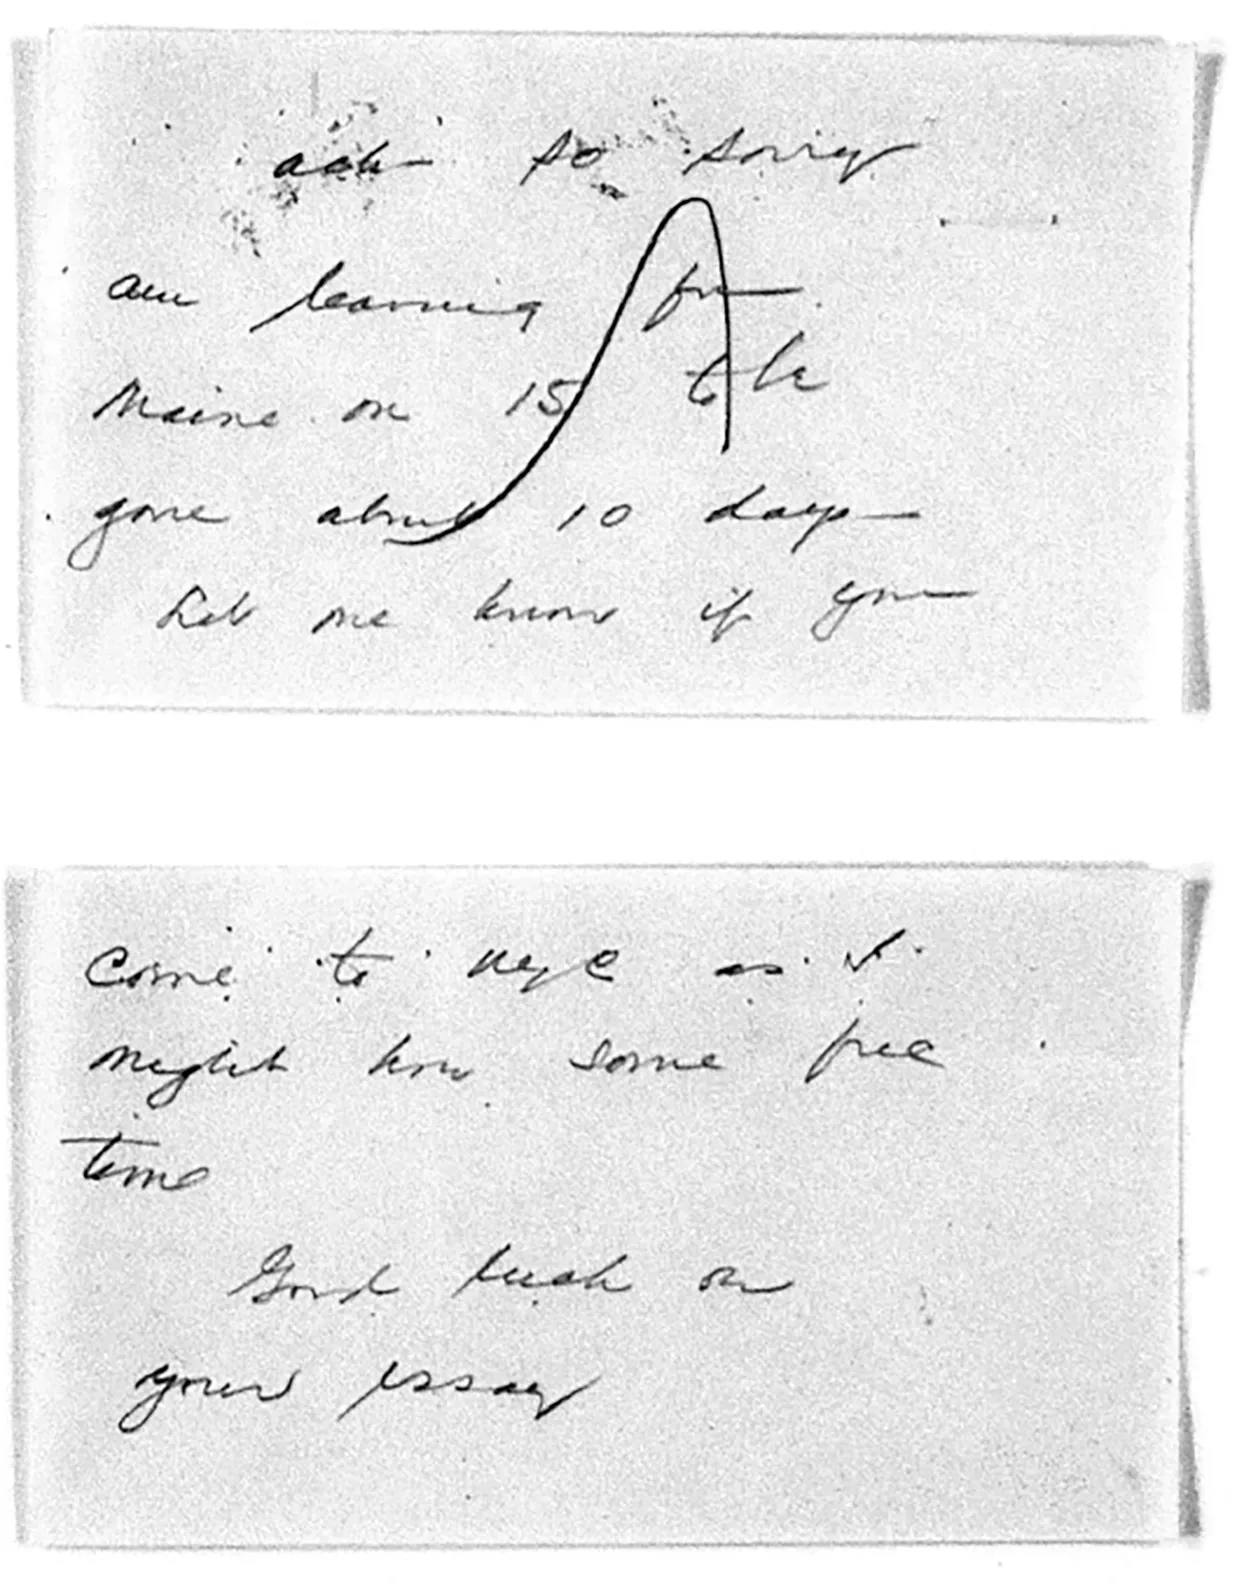 ach so sorry
am leaving for
Maine on 15 to be
gone about 10 days
Let me know if you
come to NYC as I
might have some free
time
Good luck on
your essay